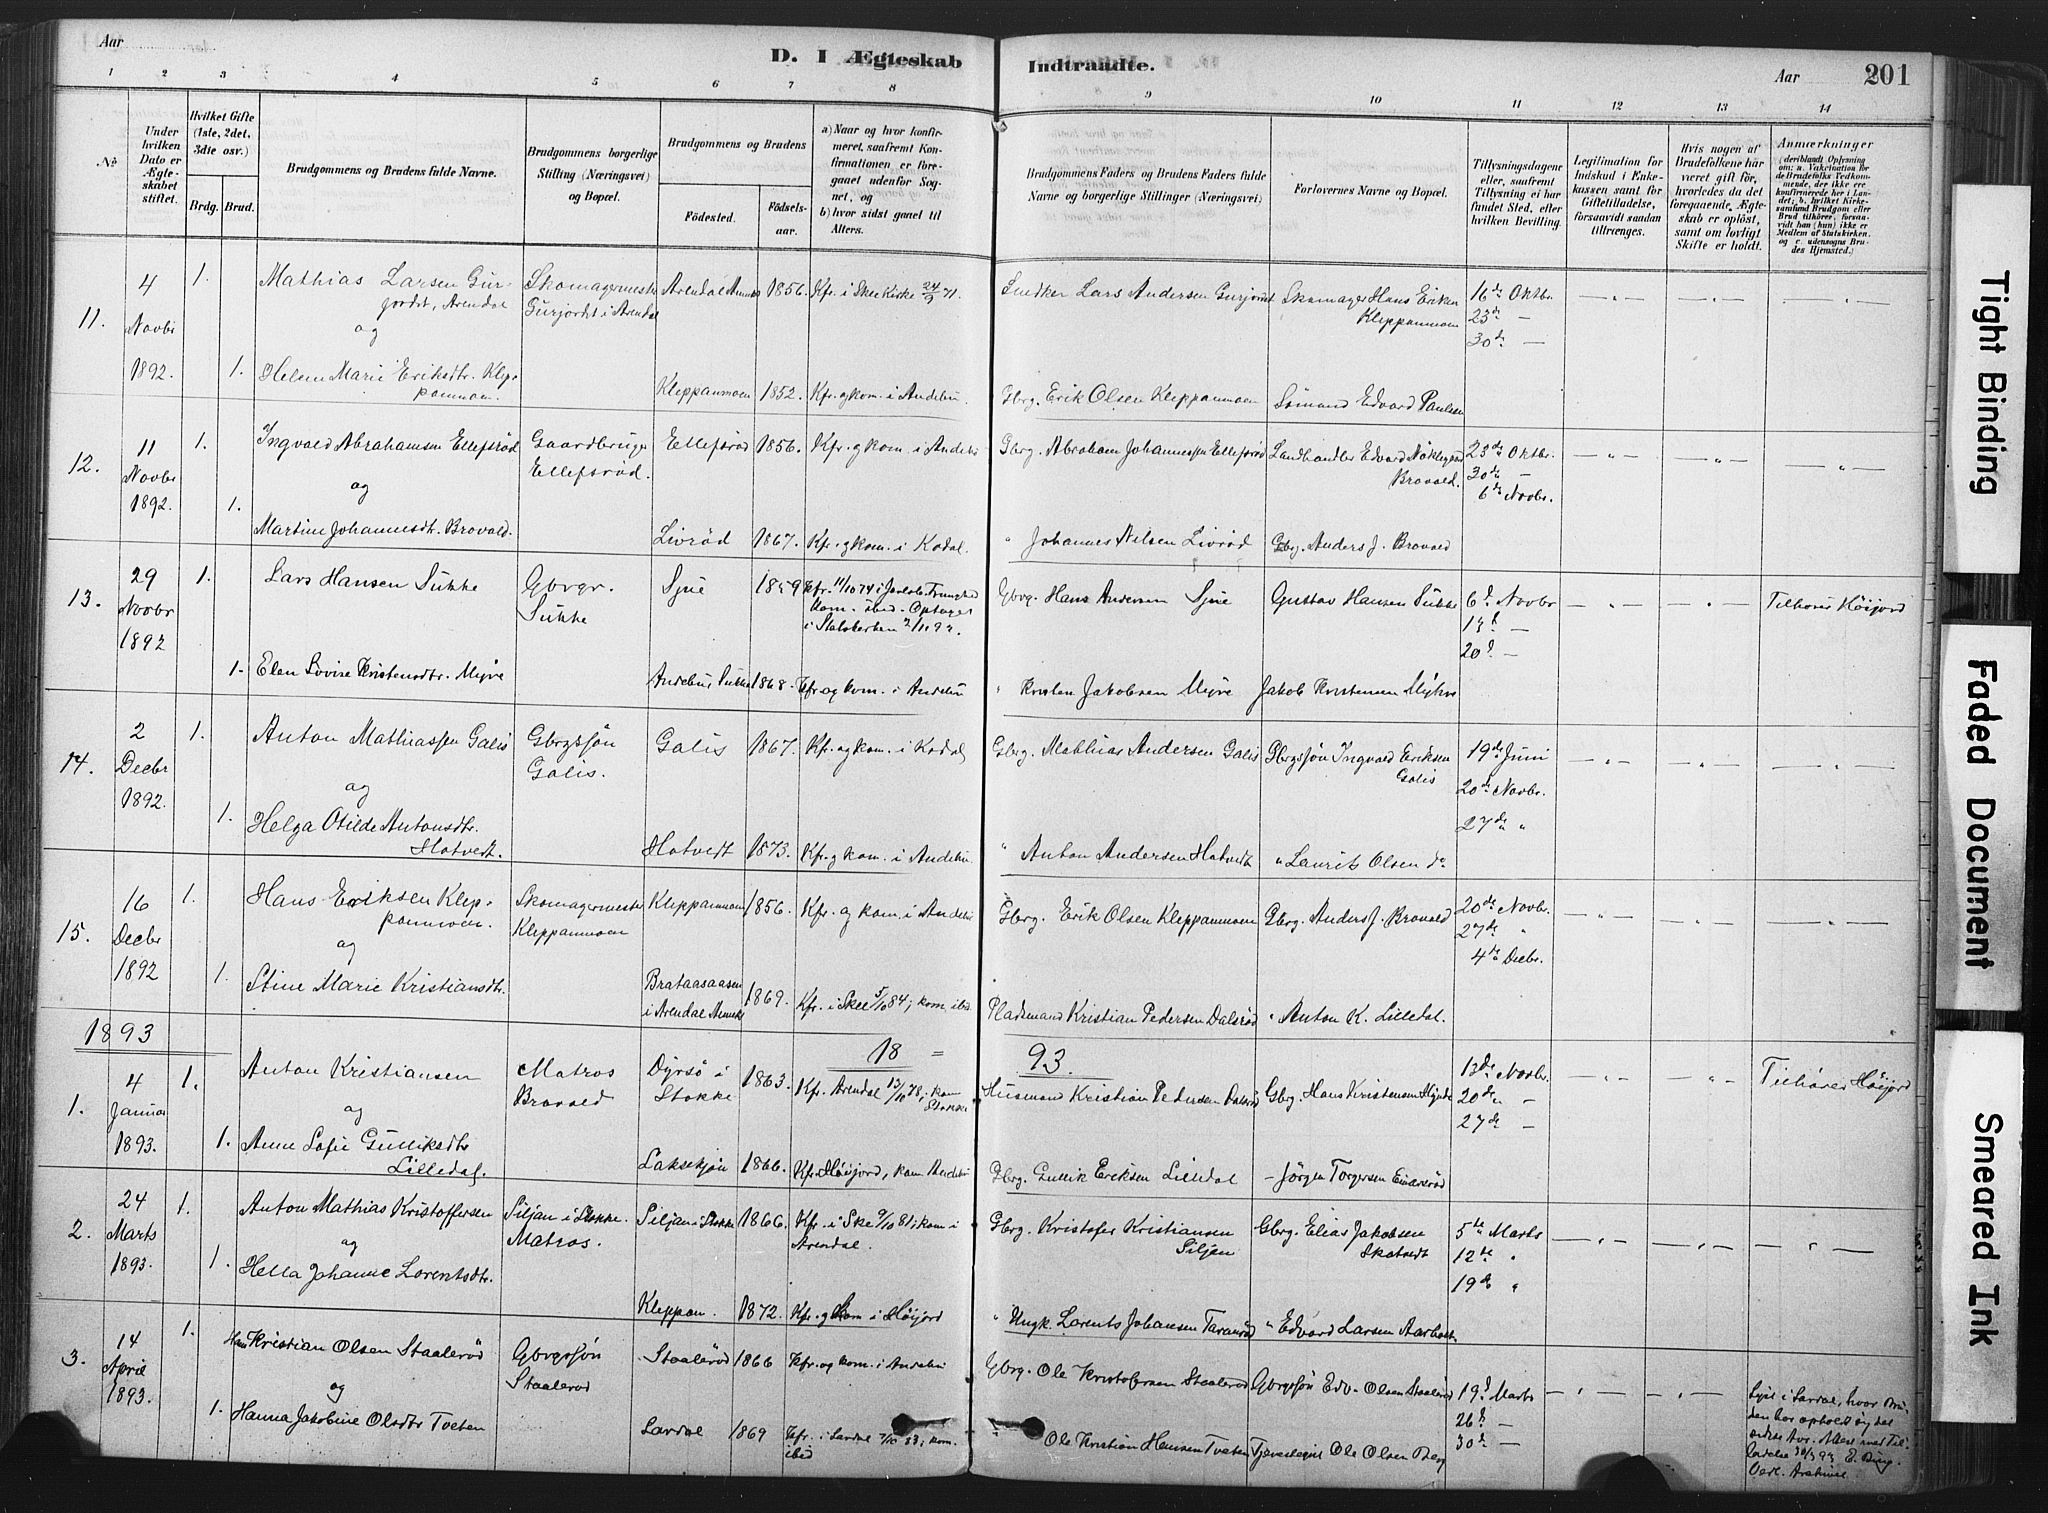 Aar
D. I Ægteskab
Indtraadte.
Aar
201
1 2 3 4 5 6 7 8 9 10 11 12 13 14
No
Under hvilken Dato er Ægteskabet stiftet.
Hvilket Gifte (1ste, 2det, 3die osv.)
Brdg. Brud.
Brudgommens og Brudens fulde Navne.
Brudgommens borgerlige Stilling (Næringsvei) og Bopæl.
Brudgommens og Brudens
Födested.
Födselsaar.
a) Naar og hvor konfirmeret, saafremt Konfirmationen er foregaaet udenfor Sognet, og
b) hvor sidst gaaet til Alters.
Brudgommens Faders og Brudens Faders fulde Navne og borgerlige Stillinger (Næringsvei)
Forlovernes Navne og Bopæl.
Tillysningsdagene eller, saafremt Tillysning ei har fundet Sted, efter hvilken Bevilling.
Legitimation for Indskud i Enkekassen samt for Giftetilladelse, forsaavidt saadan tiltrænges.
Hvis nogen af Brudefolkene har været gift för, hvorledes da det foregaaende Ægteskab er oplöst, samt om lovligt Skifte er holdt.
Anmærkninger
11. 4 Novbr 1892. 1.
Mathias Larsen Gurjordet, Arendal
Skomagermester Gurjordet i Arendal
1856. Kfr. i Skee Kirke 24/9 71.
Snedker Lars Andersen Gurjordet
Skomager Hans Eriksen Kleppanmoen
16de Oktbr. 23de — 30de —
og
1. Helene Marie Eriksdtr. Kleppanmoen
Kleppanmoen 1852. Kfr. og kom. i Andebu.
Gbrg. Erik Olsen Kleppanmoen
Sömand Edvard Paulsen
12. 11 Novbr 1892. 1.
Ingvald Abrahamsen Ellefsröd
Gaardbruger Ellefsröd.
Ellefsröd 1856. Kfr. og kom. i Andebu
Gbrg. Abraham Johannessen Ellefsröd
Landhandler Edvard
Bravald.
23de Oktbr. 30de 6te Novbr.
og
1. Martine Johannesdtr. Bravald.
Livröd 1867. Kfr. og kom. i Kodal.
" Johannes Nilsen Livröd
Gbrg. Anders J. Bravald
13. 29 Novbr 1892 1.
Lars Hansen Sukke
Gbrgr. Sukke
Sjue 1859 Kfr. 11/10 74 i Jarlsb.
kom. ibid. Optaget i Statskirken
Gbrg. Hans Andersen Sjue
Gustav Hansen Sukke
6te Novbr 13de — 20de —
Tilhører Höijord
1. Elen Lovise Kristensdtr. Myre
Andebu Sukke 1868. Kfr. og kom. i Andebu
" Kristen Jakobsen Myre
Jakob Kristensen Myhre
14. 2 Decbr 1892. 1.
Anton Mathiassen Galis
Gbrgssön Galis.
Galis 1867. Kfr. og kom. i Kodal
Gbrg. Mathias Andersen Galis
Gbrgssön Ingvald Eriksen Galis
19de Juni 20de Novbr. 27de "
og
1. Helga Otilde Antonsdtr. Hotvedt.
Hotvedt 1873. Kfr. og kom. i Andebu
" Anton Andersen Hotvedt
" Laurits Olsen do
15. 16 Decbr 1892 1.
Hans Eriksen Kleppanmoen.
Skomagermester Kleppanmoen
Kleppanmoen 1856. Kfr. og kom. i Andebu
Gbrg. Erik Olsen Kleppanmoen
Gbrg. Anders J. Bravald
20de Novbr. 27de " 4de Decbr.
og
1. Stine Marie Kristiansdtr.
Brataasaasen i Arendal 1869. Kfr. i Skee 5/10 84, kom. ibid.
Pladsmand Kristian Pedersen Dalsröd
" Anton K. Lilledal.
1893
18 = 93.
1. 4 Januar 1893. 1.
Anton Kristiansen
Matros Bravald
Dyrsö i Stokke 1863. Kfr. Arendal 13/10 78, kom Stokke
Husmand Kristian Pedersen Dalsröd
Gbrg. Hans Kristensen
13de Novbr. 20de — 27de —
Tilhörer Höijord
og
1. Anne Sofie Gulliksdtr Lilledal.
Lakskjön 1866. Kfr. Höijord, kom. Andebu
Gbrg. Gullik Eriksen Lilledal
— Jörgen Torgersen Einarsröd
2. 24 Marts 1893. 1.
Anton Mathias Kristoffersen
Siljan i Stokke. Matros.
Siljan i Stokke 1866. Kfr. i Ske 9/10 81, kom i Arendal.
Gbrg. Kristofer Kristiansen Siljan
Gbrg. Elias Jakobsen Skatvedt
5te Marts 12te " 19de "
og
1. Hella Johanne Lorentsdtr.
Kleppan. 1872. Kfr. og kom i Höijord
" Ungk. Lorents Johansen Taranröd
" Edvard Larsen
3. 14 April 1893. 1.
Hans Kristian Olsen Staaleröd
Gbrgssön Staaleröd
Staaleröd 1866 Kfr. og kom. i Andebu
Gbrg. Ole Kristofersen Staaleröd
Gbrgssön Edv. Olsen Staaleröd
19de Marts 26de — 30de —
Lyst i Lardal, hvor Bruden har ophold
og
1. Hanna Jakobine Olsdtr Tveten
Lardal 1869 Kfr. i Lardal 7/10 83, kom. ibid
Ole Kristian Hansen Tveten
Ole Olsen Berg
Tight Binding
Faded Document
Smeared Ink